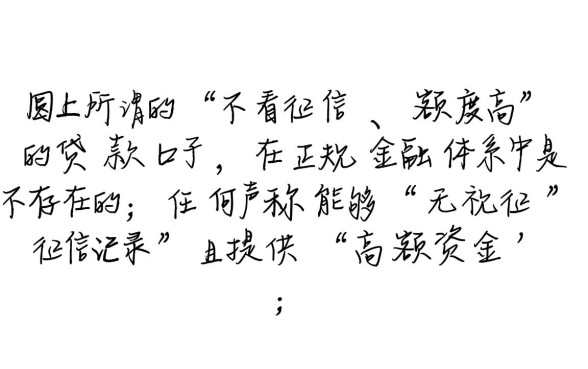 圆上所谓的“不看征信、额度高”
的贷款口子，在正规金融体系中是
不存在的；任何声称能够“无视征”
征信记录”且提供“高额资金’
；